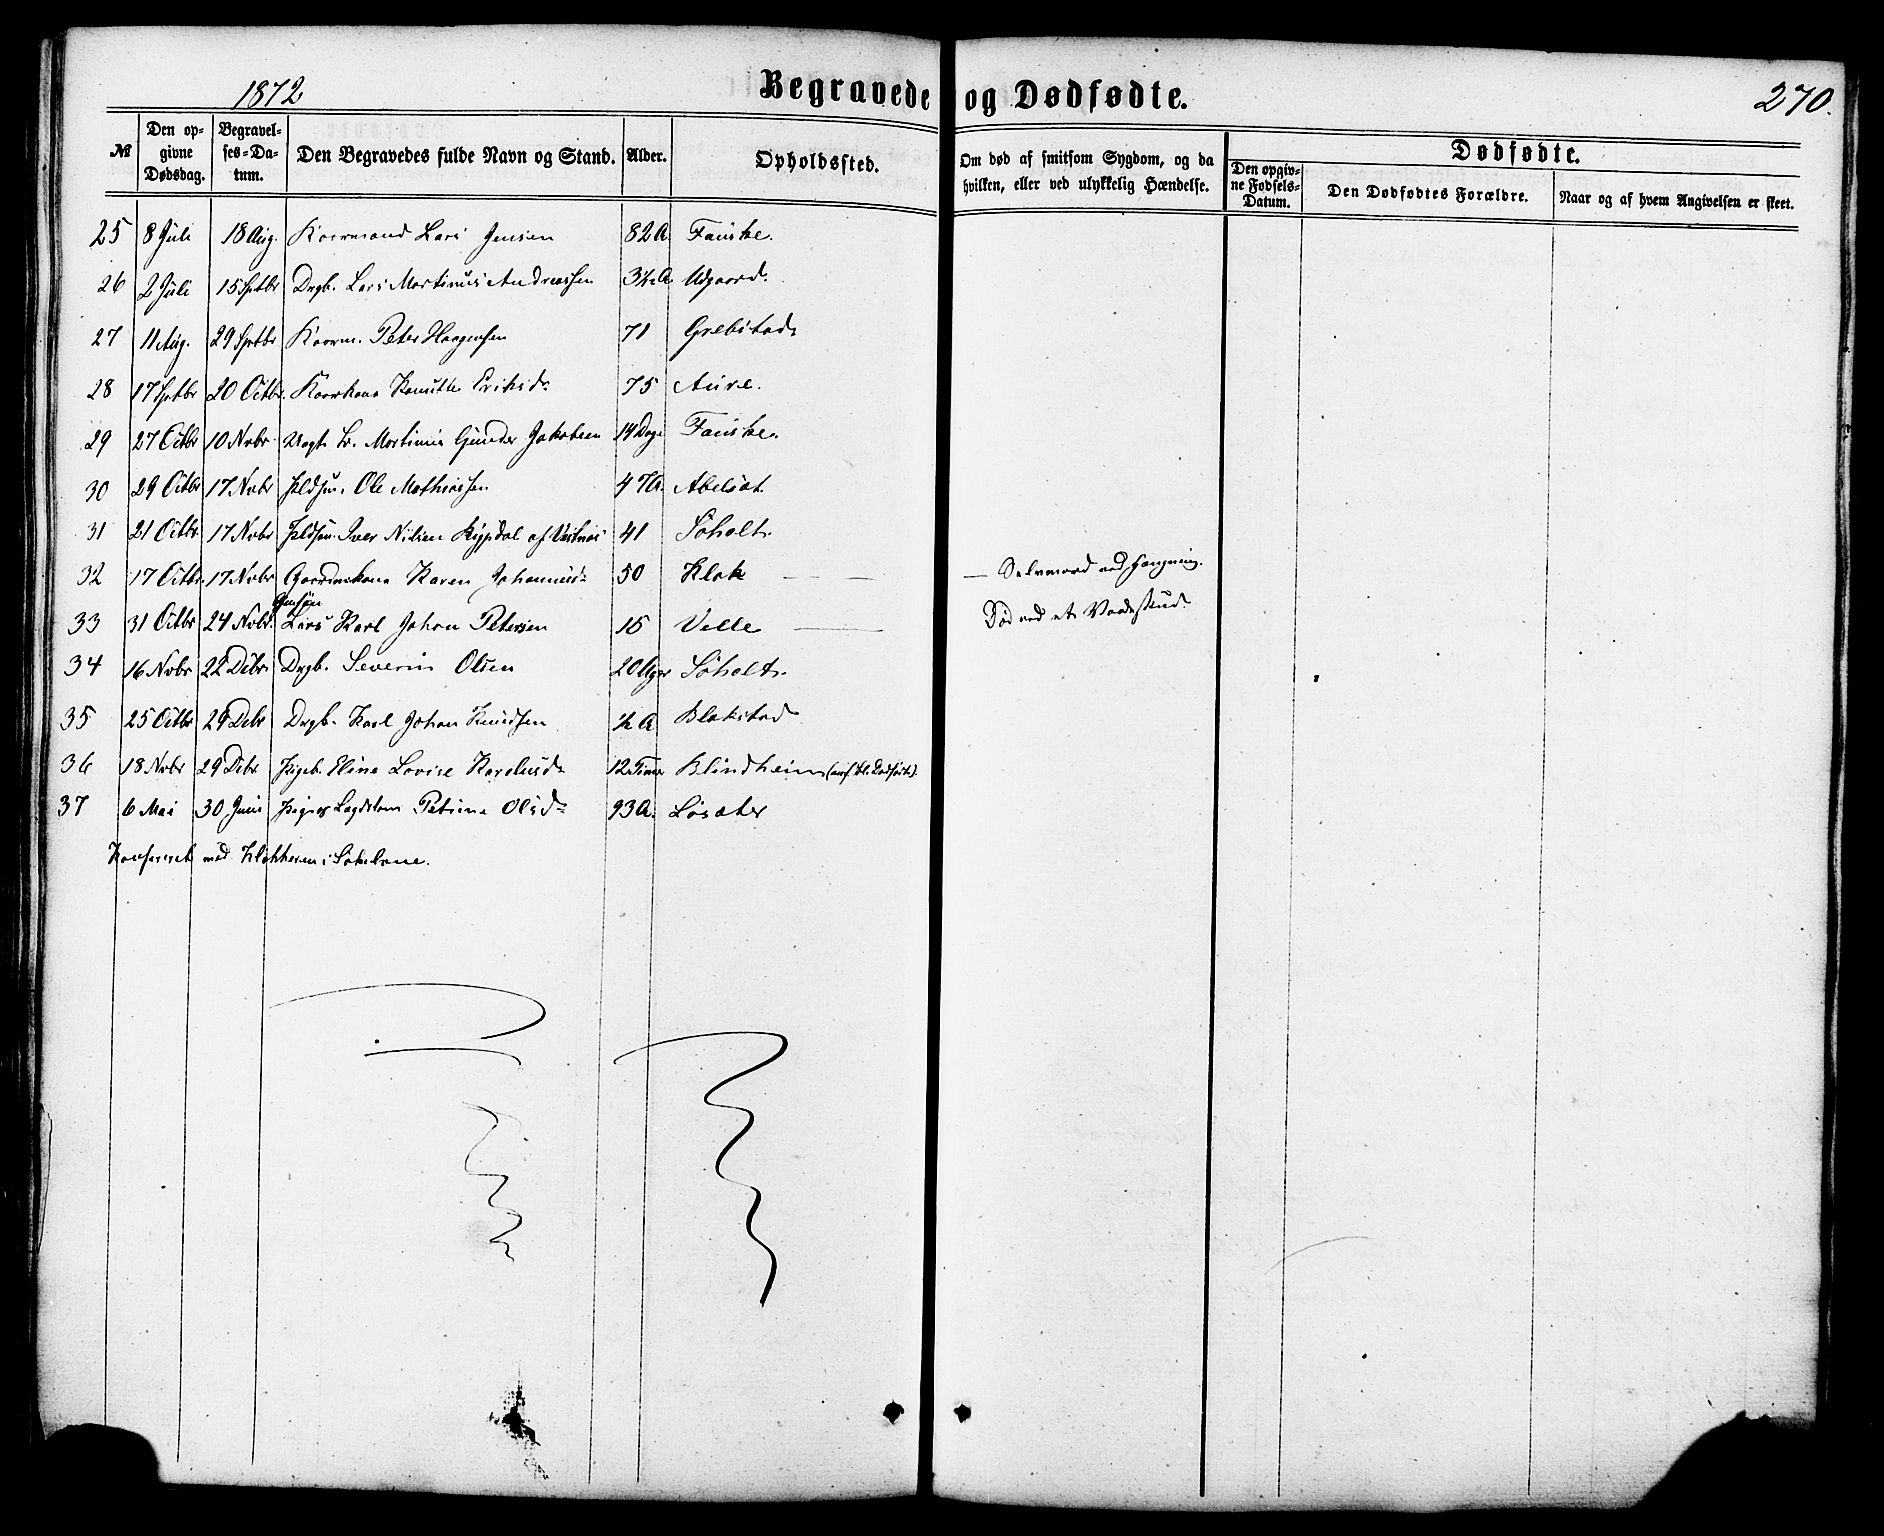 1872
Begravede og Dødfødte.
270.
№
Den opgivne Dødsdag.
Begravelses-Datum.
Den Begravedes fulde Navn og Stand.
Alder.
Opholdssted.
Om død af smitsom Sygdom, og da hvilken, eller ved ulykkelig Hændelse.
Dødfødte.
Den opgivne Fødsels-Datum.
Den Dødfødtes Forældre.
Naar og af hvem Angivelsen er skeet.
25 8 Juli 18 Aug. Kaarmand Lars Jensen 82 A. Fauske.
26 2 Juli 15 Septbr Drgb. Lars Martinus Andreassen Udgaard.
27 11 Aug. 29 Septbr Kaarm. Peter Haagensen 71 Grebstad
28 17 Septbr 20 Octbr. Kaarkone Knutte Eriksdr 75 Aure.
29 27 Octbr 10 Novbr Martinus Gunder Jakobsen 14 Dage Fauske.
30 29 Octbr 17 Novbr Ole Mathiassen 47 A. Abelsæt.
31 21 Octbr 17 Novbr Iver Nilsen Kypdal af Vestnæs 41 Søholt.
32 17 Octbr. 17 Novbr Gaardmkone Karen Johannesd: 50 Klok — — — Selvmord ved Hængning.
33 31 Octbr 24 Novbr. Lars Karl Johan Petersen 15 Velle — Død ved et Vaadeskud.
34 16 Novbr 22 Decbr Drgb. Severin Olsen 20 Uger Søholt.
35 25 Octbr 29 Decbr Drgb. Karl Johan Knudsen ½ A Blakstad
36 18 Novbr 29 Decbr. Pigeb. Eline Lovise Karolusdr 12 Timer Blindheim
37 6 Mai 30 Juni Pige Lægdslem Petrine Olsd= 93 A. Løsæter
Konfereret med Klokkeren i Søkelven.